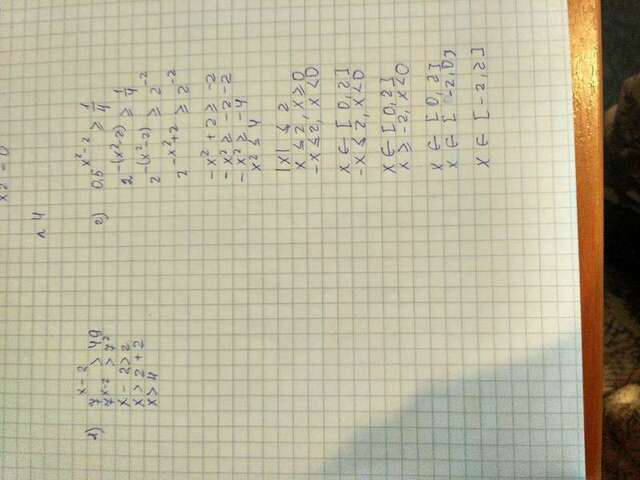 x2 = 0
n 4
1) 7^x-2 > 49
7^x-2 > 7^2
x - 2 > 2
x > 2 + 2
x > 4
2) 0,5^x²-2 ≥ 1/4
2^-(x²-2) ≥ 1/4
2^-(x²-2) ≥ 2^-2
2^-x²+2 ≥ 2^-2
-x² + 2 ≥ -2
-x² ≥ -2 -2
-x² ≥ -4
x² ≤ 4
|x| ≤ 2
x ≤ 2, x ≥ 0
-x ≤ 2, x < 0
x ∈ [0, 2]
-x ≤ 2, x < 0
x ∈ [0, 2]
x ≥ -2, x < 0
x ∈ [0, 2]
x ∈ [-2, 0)
x ∈ [-2, 2]